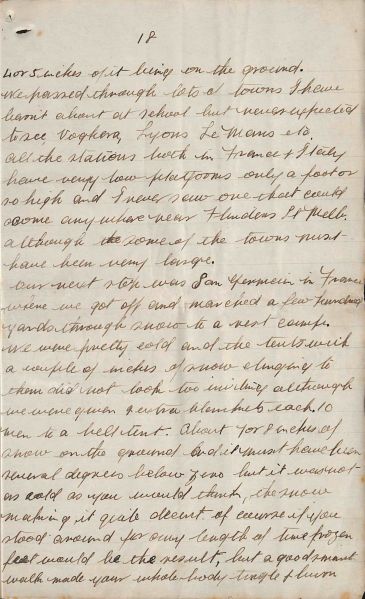 18
4 or 5 inches of it being on the ground.
We passed through lots of towns I have
learnt about at school but never expected
to see Voghera, Lyons Le Mans etc.
all the stations both in France & Italy
have very low platforms only a foot or
so high and I never saw one that could
come any where near Flinders St Melb.
although some of the towns must
have been very large.
Our next stop was San Germein in France
where we got off and marched a few hundred
yards through snow to a rest camp.
We were pretty cold and the tents with
a couple of inches of snow clinging to
them did not look too inviting although
we were given 2 extra blankets each. 10
men to a bell tent. About 7 or 8 inches of
snow on the ground and it must have been
several degrees below zero but it was not
as cold as you would think, the snow
making it quite decent. of course if you
stood around for any length of time frozen
feet would be the result, but a good smart
walk made your whole body tingle & burn